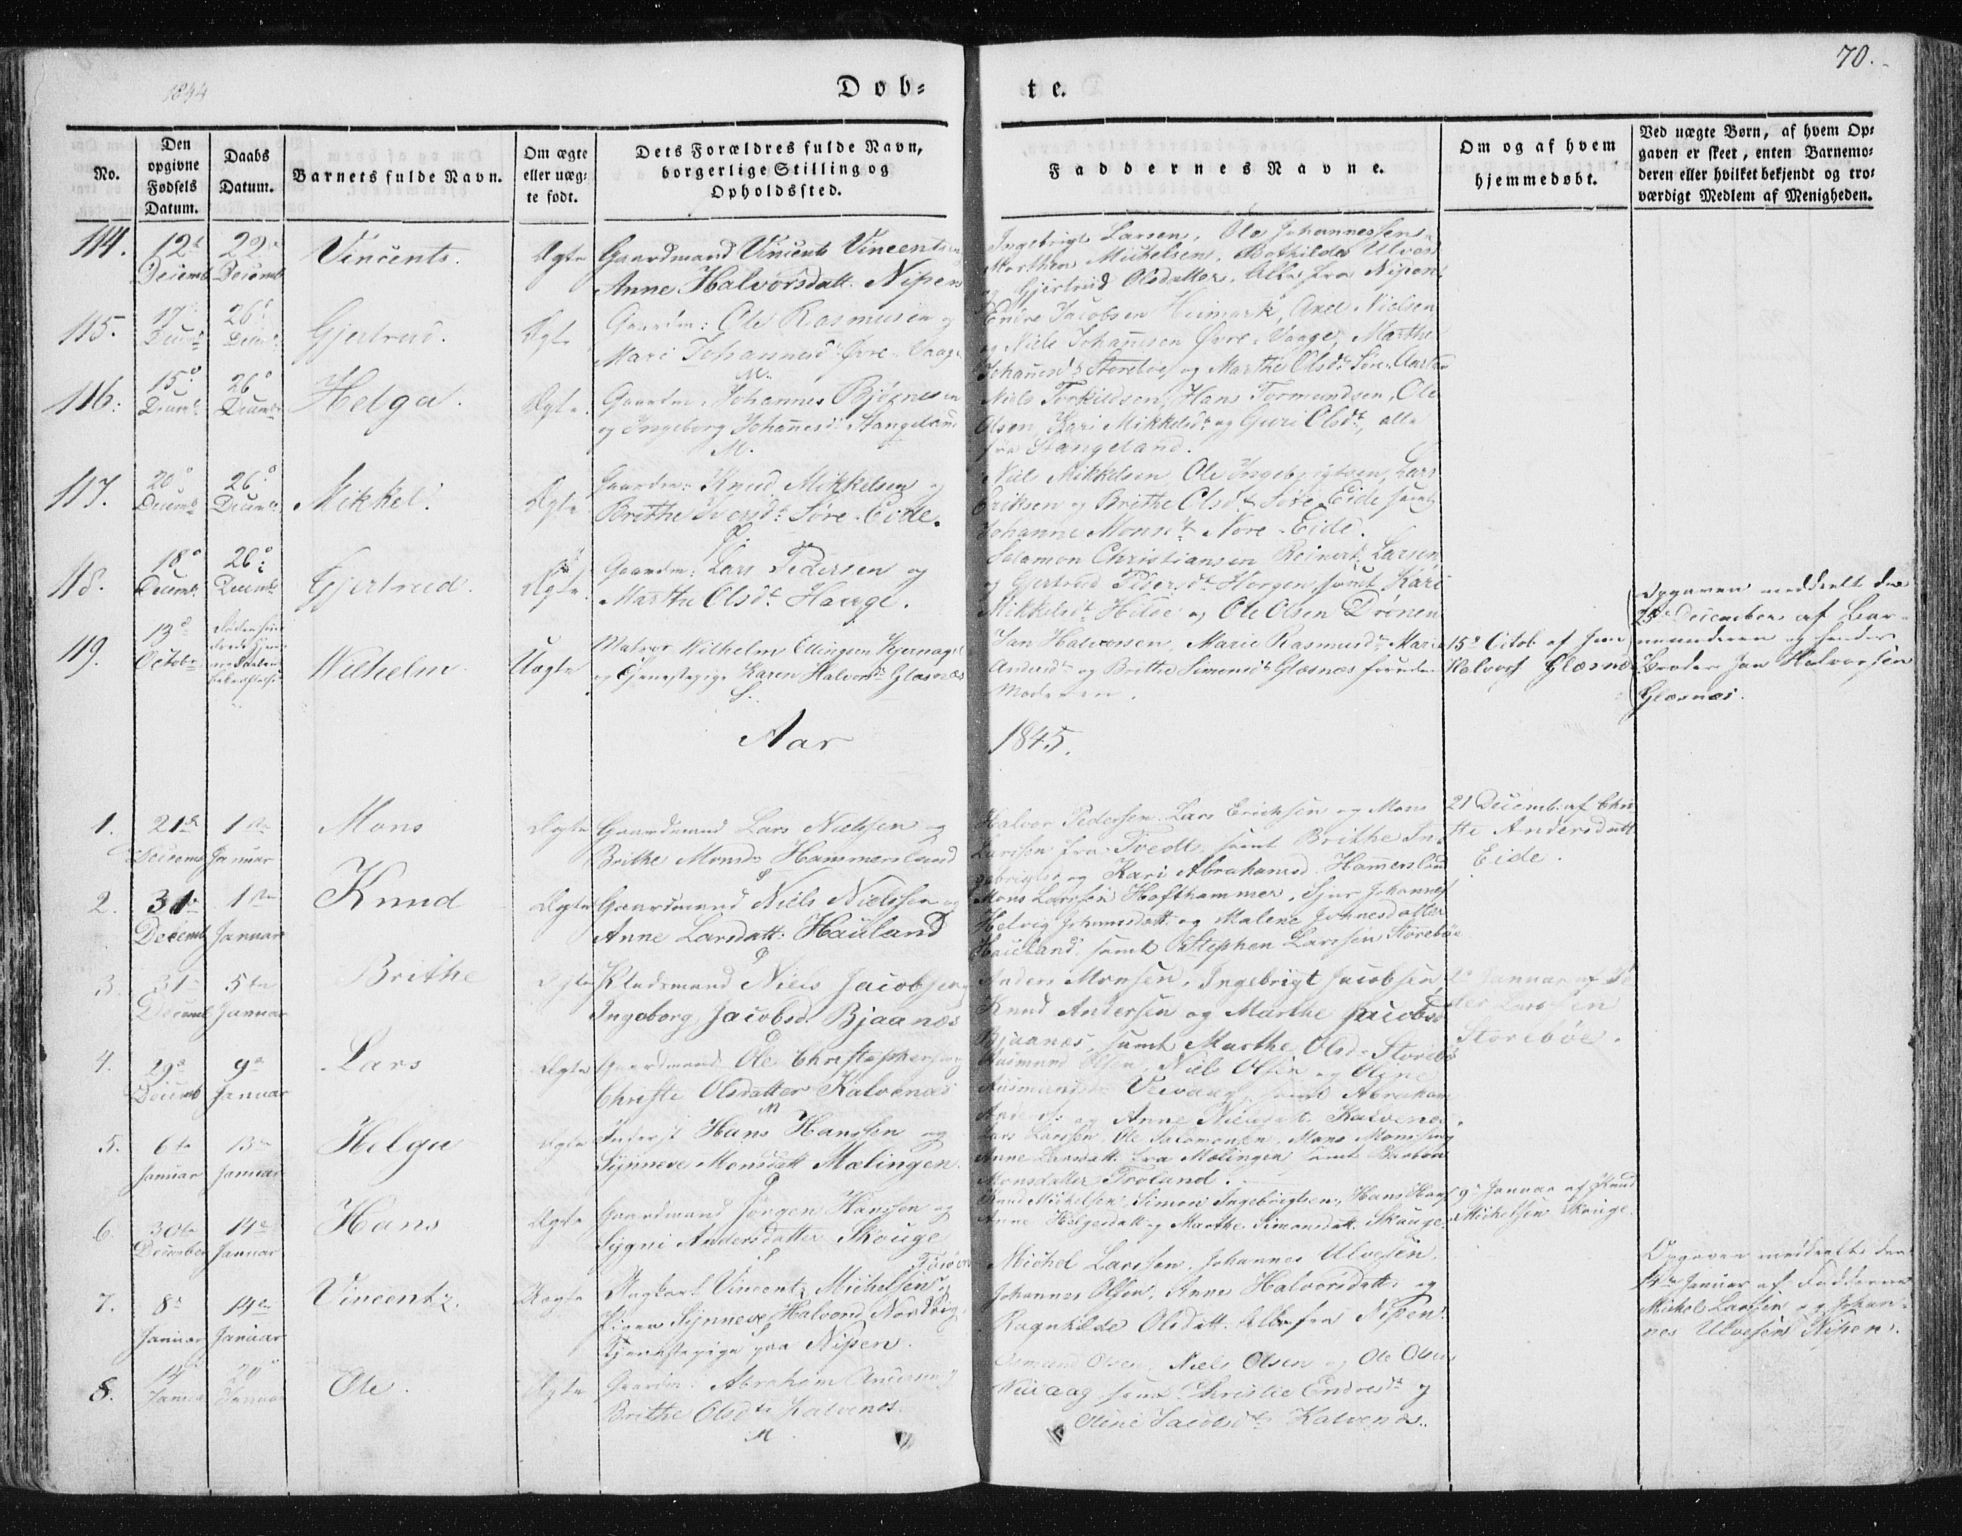 1844
Døb-
te.
70.
No.
Den opgivne Fødsels Datum.
Daabs Datum.
Barnets fulde Navn.
Om ægte eller uæg-
te født.
Dets Forældres fulde Navn,
borgerlige Stilling og
Opholdssted.
Faddernes Navne.
Om og af hvem
hjemmedøbt.
Ved uægte Børn, af hvem Op-
gaven er skeet, enten Barnemo-
deren eller hvilket bekjendt og tro-
værdigt Medlem af Menigheden.
114. 12 Decemb 22 Decemb Vincents. Ægte Gaardmand Vincents Vincentsen
Anne Halvorsdatt. Nipen
Ingebrigt Larsen, Ole Johannessen
Marthea Michelsen, Bothilda
og Gjertrud Olsdatter, Alle fra Nipen
115. 17 Decemb 26 Decemb Gjertrud. Ægte Gaardm: Ole Rasmusen og
Mari Johannesd Øvre-Vaage
M.
Endre Jacobsen Heimark, Nielsen
og Niels Johannesen Øvre-Vaage, Marthe
Johannesdt Storebøe og Marthe Olsdt Søre
116. 15 Decemb 26 Decemb Helga. Ægte Gaardm: Johannes
og Ingeborg Johannesd Stangeland
M.
Niels Torkildsen, Hans Tormundsen, Ole
Olsen, Kari Mikkelsdt og Guri Olsdt, alle
fra Stangeland.
117. 20 Decemb 26 Decemb Mikkel. Ægte Gaardm: Knud Mikkelsen og
Brithe Søre-Eide.
Niels Mikkelsen, Ole Ingebrigtsen, Lars
Eriksen og Brithe Olsdt Søre Eide samt
Johanne Monsdt Nore-Eide.
118. 18 Decemb 26 Decemb Gjertrud. Ægte Gaardm: Lars Pedersen og
Marthe Olsdt Hauge.
Salamon Christiansen Reinert Larsen
og Gjertrud Horgen, samt Kari
Mikkelsdt og Ole Olsen Drønen
119. 13 Octob Wilhelm Uægte Matros Wilhelm Ellingsen
og Tjenestepige Karen Halvorsdt Glæsnæs
Jan Halvorsen, Marie Rasmusdt
Andersdt og Brithe Simonsdt Glæsnæs foruden
Moderen.
15 Octob af Jan
Halvors Glæsnæs
Opgaven meddelt den
23 December af Bar-
nemoderen og hendes
Broder Jan Halvorsen
Glæsnæs.
Aar 1845.
1. 21de Decemb 1ste Januar Mons Ægte Gaardmand Lars Nielssen og
Brithe Monsd Hammersland
Halvor Pedersen. Lars Erichsen og Mons
Larssen fra Tvedt, samt Brithe In-
gebrigtsd og Kari Abrahamsd Hammersland
21 Decemb: af
Andersdatt
Eide.
2. 31 Decemb 1ste Januar Knud Ægte Gaardmand Niels Nielssen og
Anne Larsdatt: Hauland
Mons Larssen Hofthammer, Sjur Johannes
Helvig Johannesdatt og Malene Johannesdatter
Hauland, samt Stephen Larssen Storebøe
3. 31 Decemb 5te Januar Brithe Ægte Pladsmand Niels Jacobsen
Ingeborg Jacobsd Bjaanæs
Anders Monsen, Ingebrigt Jacobsen
Knud Andersen og Marthe Jacobsd
Bjaanæs, samt Marthe Olsd Storebø
Januar af Pe-
der Larssen
Storebøe.
4. 29 Decemb 9 Januar Lars Ægte Gaardmand Ole Christophersen
Christe Olsdatter Kalvenæs
M
Rasmund Olsen, Niels Olsen og Oline
samt Abraham
og Anne Nielsdatt. Kalvenæs.
5. 6te Januar 13 Januar Helga Ægte Inderst Hans Hanssen og
Synneve Monsdatt Mælingen
Lars Larssen, Ole Salomonsen, Mons Monssen
Anne Larsdatt: fra Mælingen samt
Monsdatter Troland.
6. 30te December 14 Januar Hans Ægte Gaardmand Jørgen Hanssen og
Sygni Andersdatter Skouge
Knud Michelsen, Simon Ingebrigtsen, Hans Hans
Anne Helgesdatt og Marthe Simonsdatt. Skauge
9 Januar af Knud
Michelsen Skouge.
7. 8 Januar 14 Januar Vincentz. Uægte Ungkarl Vincentz Michelsen
Pigen Synneve Halvorsd
Tjenestepige paa Nipen.
Michel Larssen, Johannes Ulvesen,
Johannes Olsen, Anne Halvorsdatt: og
Ragnhilde Olsdatt. Alle fra Nipen.
Opgaven meddelt den
14 Januar af Fadderne
Michel Larssen og Johan-
nes Ulvesen Nipen.
8. 14 Januar 20 Januar Ole. Ægte Gaardm: Abraham Andersen og
Brithe Olsdtr Kalvenes.
M
Osmund Olsen, Niels Olsen og Ole Olsen
samt Christie Endresdt og
Oline Jacobsdt Kalvenæs.